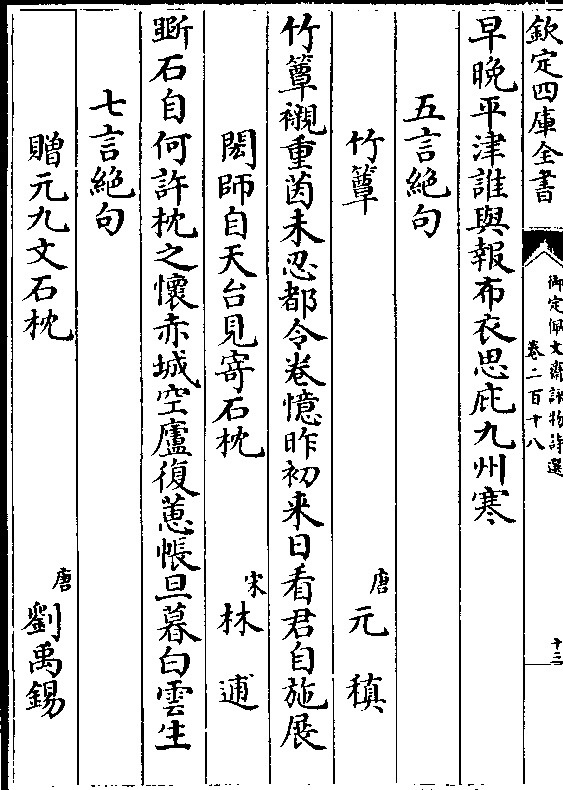 欽定四庫全書
御定佩文齋詠物詩選
卷二百十八
十二
早晚平津誰與報布衣思庇九州寒
五言絶句
竹簟
唐元稹
竹簟襯重茵未忍都令卷憶昨初来日看君自施展
閎師自天台見寄石枕
宋林逋
斲石自何許枕之懷赤城空廬復蕙帳旦暮白雲生
七言絶句
贈元九文石枕
唐劉禹錫